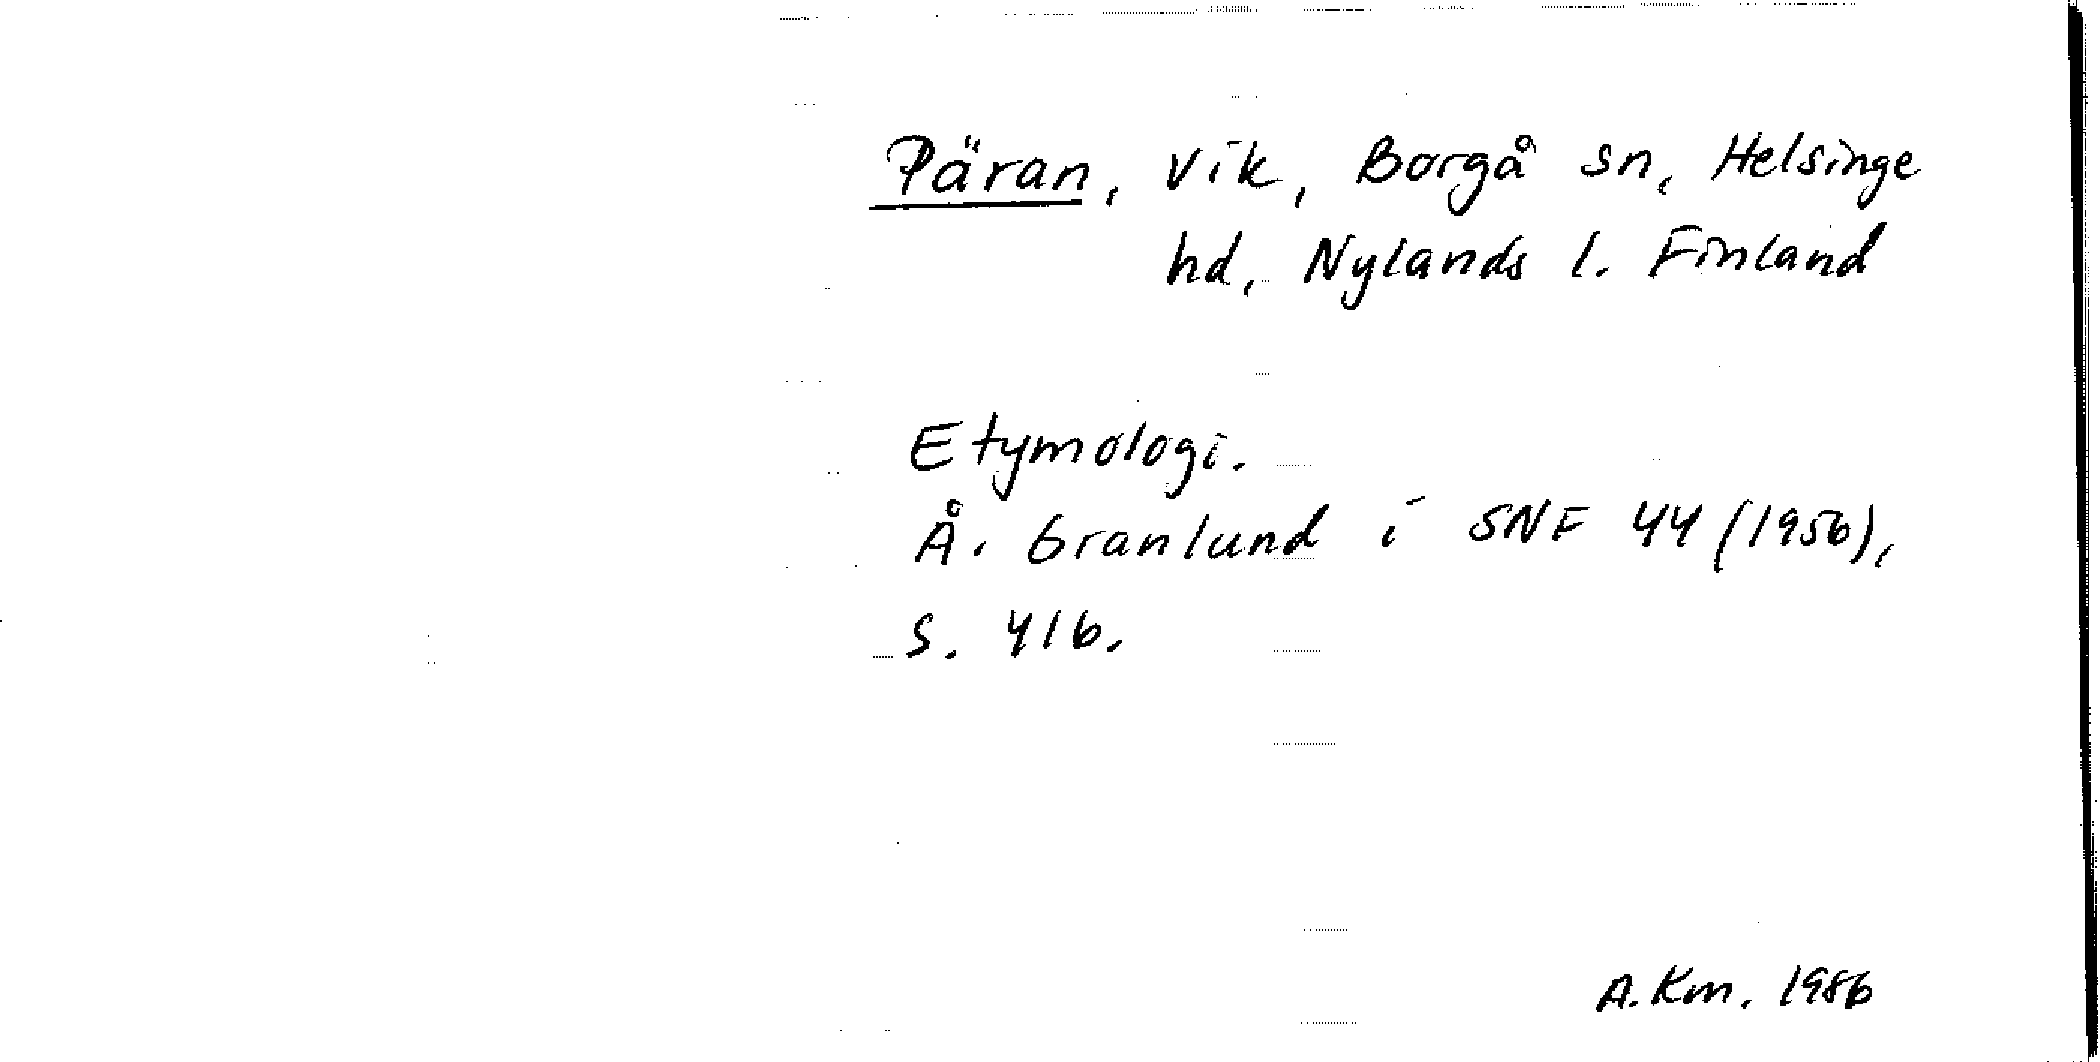 Päran, vik, Borgå sn, Helsinge
hd, Nylands l. Finland
Etymologi.
Å. Granlund i SNF 44 (1956),
s. 416.
A. Km. 1986